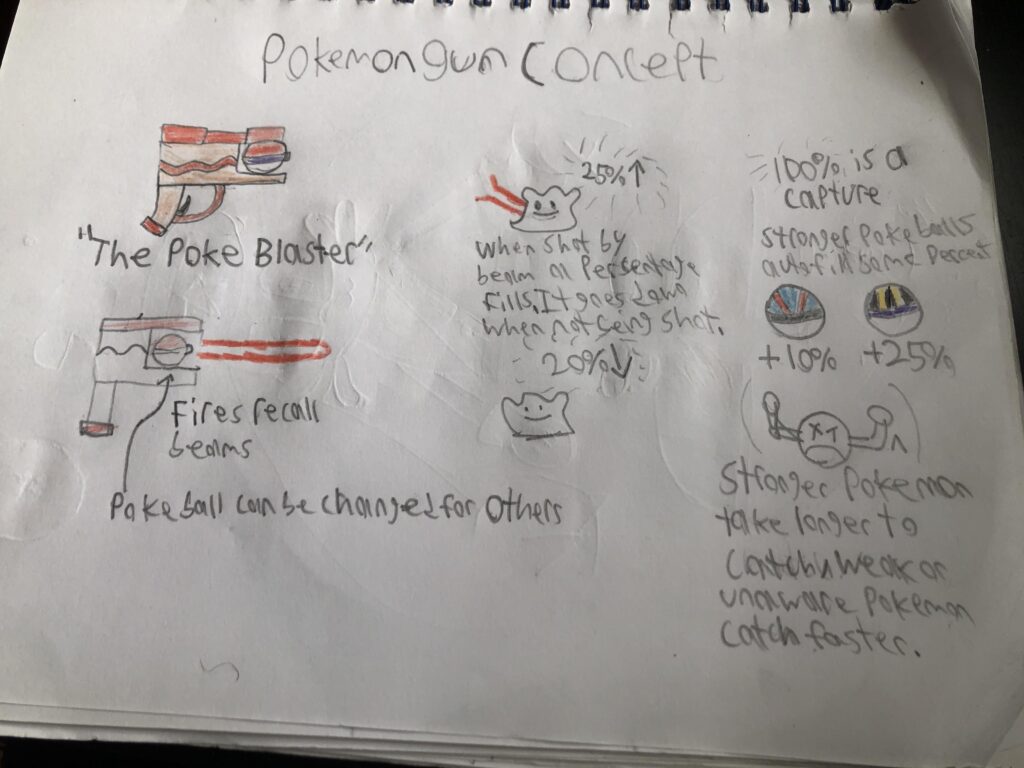 Pokemon gun Concept
"The Poke Blaster"
Fires recall
beams
Poke ball can be changed for others
25%↑
When shot by
beam a Percentage
fills, It goes down
when not being shot.
20%↓
100% is a
capture
Stronger Poke balls
auto-fill some Percent
+10% +25%
Stronger Pokemon
take longer to
Catch, weak or
unaware Pokemon
catch faster.